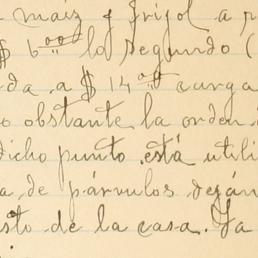 maíz y frijol a
$ 6.00 la segundo (
da a $ 14.00 carga
o obstante la orden
dicho punto está utili
a de párvulos deján
sto de la casa. Ya